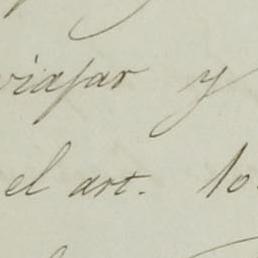 viajar y
el art. 10